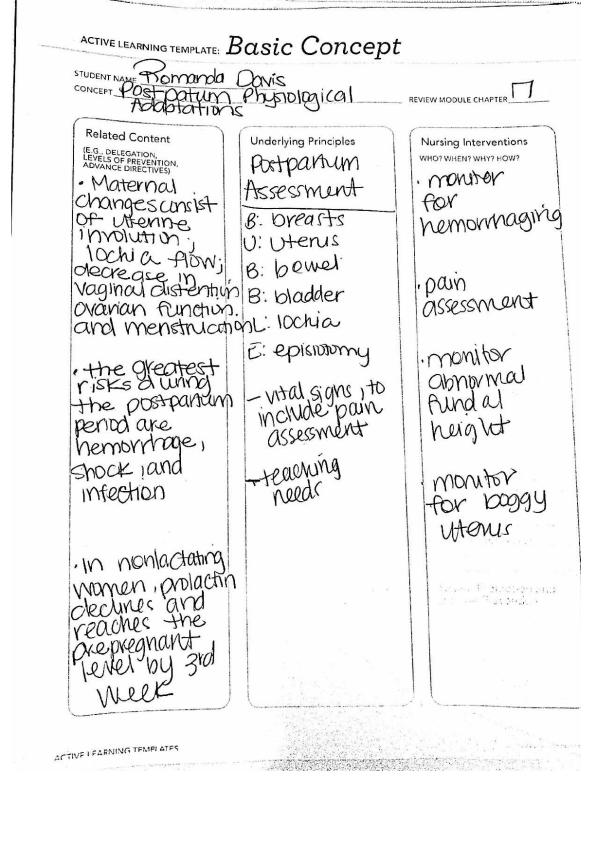 ACTIVE LEARNING TEMPLATE: Basic Concept
STUDENT NAME Romanda Davis
CONCEPT Postpatum Physiological
Adaptations
REVIEW MODULE CHAPTER 17
Related Content
(E.G., DELEGATION,
LEVELS OF PREVENTION,
ADVANCE DIRECTIVES)
• Maternal
changes consist
of uterine
involution;
lochia flow;
decrease in
vaginal distention
ovarian function.
and menstruation
• the greatest
risks during
the postpartum
period are
hemorrhage,
shock, and
infection
• In nonlactating
women, prolactin
declines and
reaches the
prepregnant
level by 3rd
week
Underlying Principles
Postpartum
Assessment
B: breasts
U: uterus
B: bowel
B: bladder
L: lochia
E: episiotomy
- vital signs, to
include pain
assessment
- teaching
needs
Nursing Interventions
WHO? WHEN? WHY? HOW?
• monitor
for
hemorrhaging
• pain
assessment
• monitor
abnormal
fundal
height
• monitor
for boggy
uterus
ACTIVE LEARNING TEMPLATES